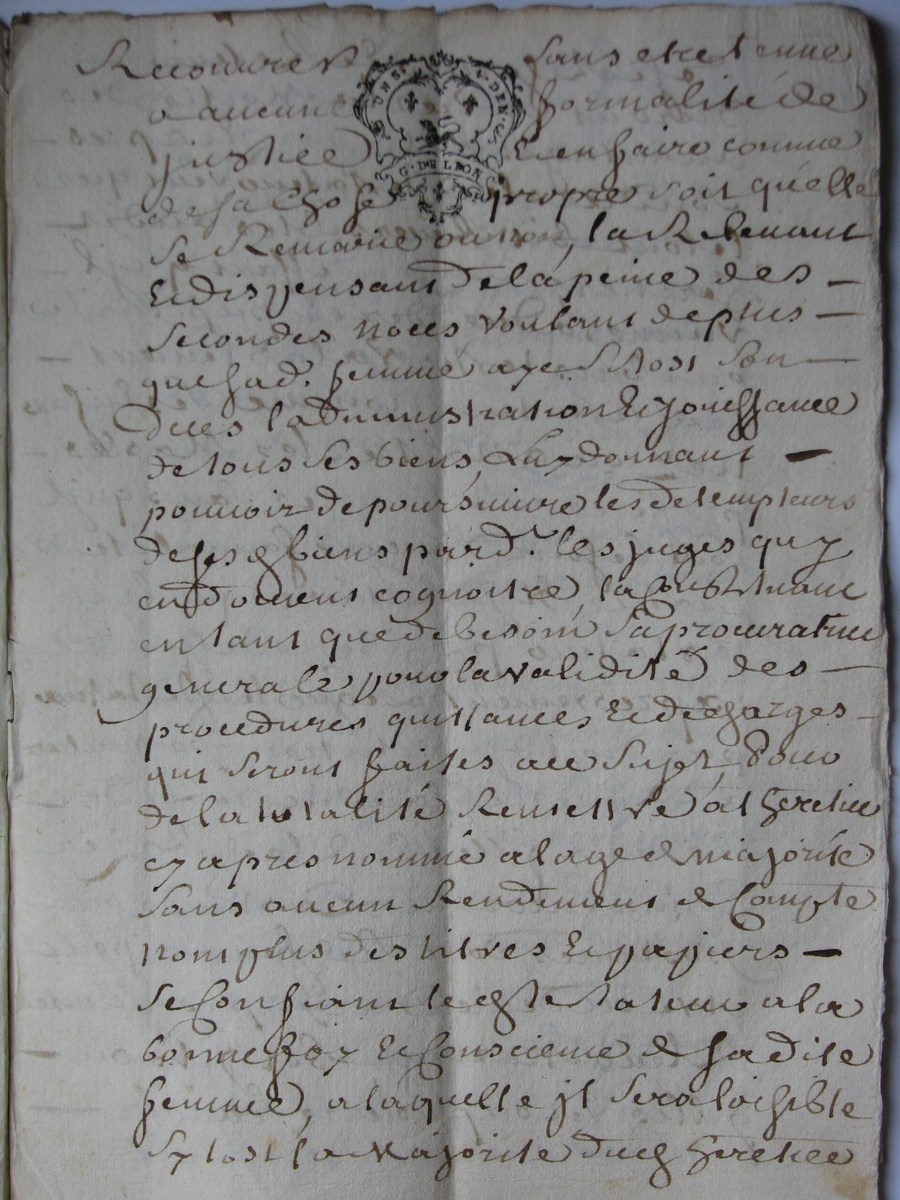 Recouvrer sans etre tenue
a aucune formalité de
justice Et en faire comme
de sa Chose propre soit qu'elle
se Remarie ou non, la Relevant
Et dispensant de la peine des
secondes noces voulant de plus
que sad. femme aye sitost son
deces ladministration Et jouissance
de tous ses biens, Luy donnant
pouvoir de poursuivre les detempteurs
de ses d biens pard.t les juges quy
en doivent cognoistre, la Constituant
en tant que de besoin sa procuratrice
generale pour la validité des
procedures quittances Et decharges
qui seront faites au sujet, Pour
de la totalité Remettre a l heritier
cy apres nommé a lage de majorité
sans aucun Rendement de Compte
non plus des titres Et papiers
se Confiant led testateur a la
bonne foy Et Conscience de sa dite
femme, a laquelle jl sera loisible
sy tost la majorité dud heritier
G. DE LION